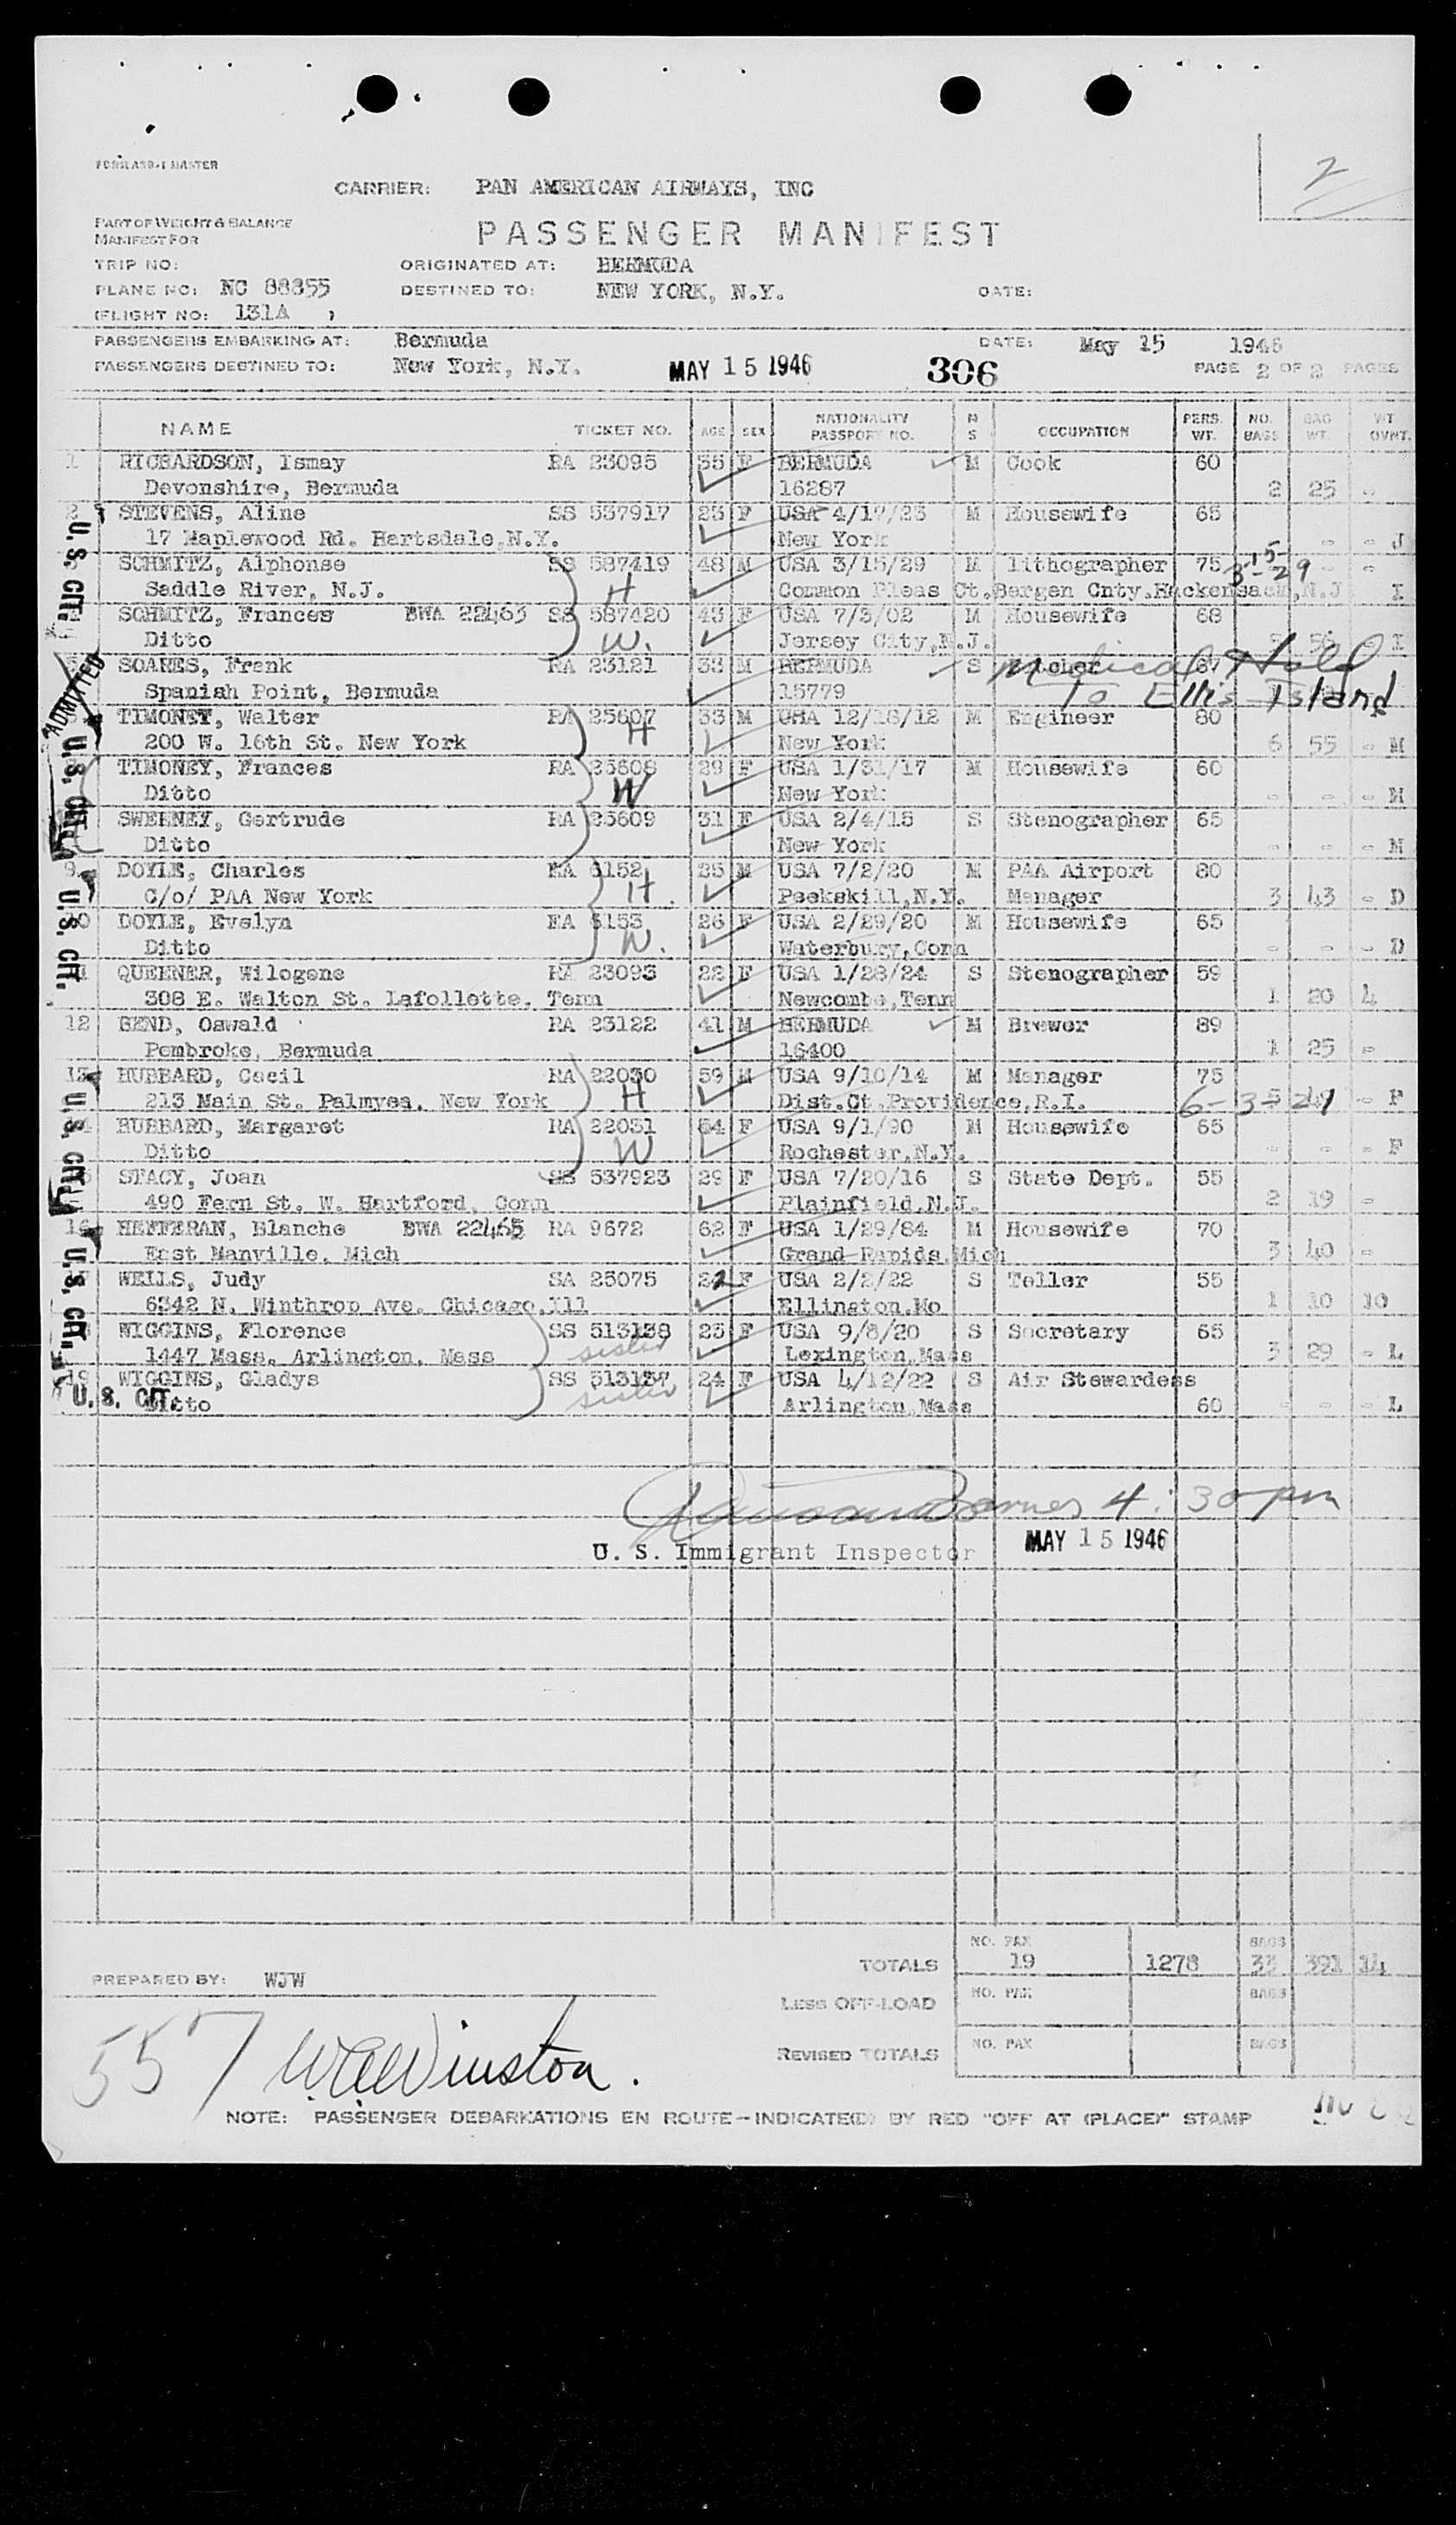 FORM ASD-1 MASTER
CARRIER: PAN AMERICAN AIRWAYS, INC
2
PART OF WEIGHT & BALANCE
MANIFEST FOR
PASSENGER MANIFEST
TRIP NO: ORIGINATED AT: BERMUDA
PLANE NO: NC 88855 DESTINED TO: NEW YORK, N.Y. DATE:
(FLIGHT NO: 131A )
PASSENGERS EMBARKING AT: Bermuda DATE: May 15 1946
PASSENGERS DESTINED TO: New York, N.Y. MAY 15 1946 306 PAGE 2 OF 2 PAGES
NAME TICKET NO. AGE SEX NATIONALITY PASSPORT NO. M S OCCUPATION PERS. WT. NO. BAGS BAG WT. WT OVWT.
1 RICHARDSON, Ismay RA 23095 55 F BERMUDA M Cook 60
Devonshire, Bermuda 16287 2 25 -
2 STEVENS, Aline SS 537917 23 F USA 4/17/23 M Housewife 65
17 Maplewood Rd. Hartsdale,N.Y. New York - - J
SCHMITZ, Alphonse SS 587419 48 M USA 3/15/29 M lithographer 75 3-15-29 - -
Saddle River, N.J. H Common Pleas Ct.Bergen Cnty.Hackensack,N.J I
SCHMITZ, Frances BWA 22463 SS 587420 43 F USA 7/3/02 M Housewife 68
Ditto W. Jersey City,N.J. - I
SOARES, Frank RA 23121 33 M BERMUDA S 67 Medical Hold
Spanish Point, Bermuda 15779 To Ellis Island
TIMONEY, Walter RA 25607 33 M USA 12/18/12 M Engineer 80
200 W. 16th St. New York H New York 6 55 - M
TIMONEY, Frances RA 25608 29 F USA 1/31/17 M Housewife 60
Ditto W New York - - - M
SWEENEY, Gertrude RA 25609 31 F USA 2/4/15 S Stenographer 65
Ditto New York - - - M
9 DOYLE, Charles EA 6152 25 M USA 7/2/20 M PAA Airport 80
C/o/ PAA New York H. Peekskill,N.Y. Manager 3 43 - D
10 DOYLE, Evelyn EA 6153 26 F USA 2/29/20 M Housewife 65
Ditto W. Waterbury,Conn - - - D
QUEENER, Wilogene RA 23093 22 F USA 1/28/24 S Stenographer 59
308 E. Walton St. Lafollette, Tenn Newcombe,Tenn 1 20 4
12 BEND, Oswald RA 23122 41 M BERMUDA M Brewer 89
Pembroke, Bermuda 16400 1 25 -
13 HUBBARD, Cecil RA 22030 59 M USA 9/10/14 M Manager 75
213 Main St. Palmyea, New York H Dist.Ct.Providence,R.I. 6-3-21 - F
HUBBARD, Margaret RA 22031 54 F USA 9/1/90 M Housewife 65
Ditto W Rochester,N.Y. - - - F
STACY, Joan SS 537923 29 F USA 7/20/16 S State Dept. 55
490 Fern St. W. Hartford, Conn Plainfield,N.J. 2 19 -
16 HEFFERAN, Blanche BWA 22465 RA 9672 62 F USA 1/29/84 M Housewife 70
East Manville, Mich Grand Rapids,Mich 3 40 -
WELLS, Judy SA 25075 22 F USA 2/2/22 S Teller 55
6342 N. Winthrop Ave. Chicago,Ill Ellington,Mo 1 10 10
WIGGINS, Florence SS 513138 25 F USA 9/8/20 S Secretary 65
1447 Mass. Arlington, Mass sister Lexington,Mass 3 29 - L
19 WIGGINS, Gladys SS 513137 24 F USA 4/12/22 S Air Stewardess
Ditto sister Arlington,Mass 60 - - - L
U. S. CIT.
ADMITTED
U. S. CIT.
U. S. CIT.
U. S. CIT.
U. S. CIT.
U. S. CIT.
Barnes 4:30 pm
U. S. Immigrant Inspector MAY 15 1946
TOTALS NO. PAX 19 1278 BAGS 33 391 14
PREPARED BY: WJW
LESS OFF-LOAD NO. PAX BAGS
REVISED TOTALS NO. PAX BAGS
557 Winston.
NOTE: PASSENGER DEBARKATIONS EN ROUTE—INDICATE(D) BY RED "OFF AT (PLACE)" STAMP